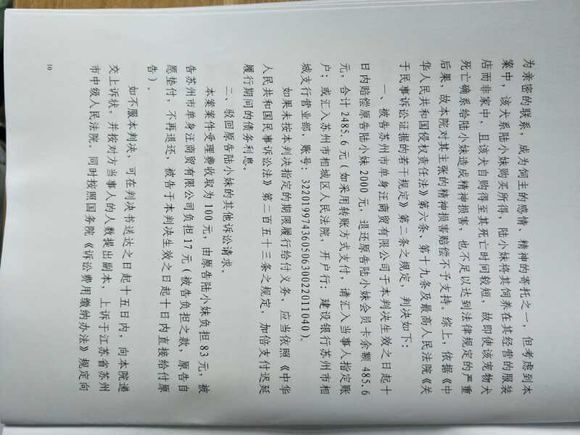 为亲密的联系，成为饲主的感情、精神的寄托之一，但考虑到本
案中，该犬系陆小妹购买所得，陆小妹将其饲养在其经营的服装
店而非家中，且该犬自购得至其死亡时间较短，故即使该宠物犬
死亡确系给陆小妹造成精神损害，也不足以达到法律规定的严重
后果，故本院对其主张的精神损害赔偿不予支持。综上，依据《中
华人民共和国侵权责任法》第六条、第十九条及最高人民法院《关
于民事诉讼证据的若干规定》第二条之规定，判决如下：
一、被告苏州市单身汪商贸有限公司于本判决生效之日起十
日内赔偿原告陆小妹 2000 元，退还原告陆小妹会员卡余额 485.6
元，合计 2485.6 元（如采用转账方式支付，请汇入当事人指定账
户；或汇入苏州市相城区人民法院，开户行：建设银行苏州市相
城支行营业部，账号：32201997436050630022011040）。
如果未按本判决指定的期限履行给付义务，应当依照《中华
人民共和国民事诉讼法》第二百五十三条之规定，加倍支付迟延
履行期间的债务利息。
二、驳回原告陆小妹的其他诉讼请求。
本案案件受理费收取为 100 元，由原告陆小妹负担 83 元，被
告苏州市单身汪商贸有限公司负担 17 元（被告负担之款，原告自
愿垫付，不再退还，被告于本判决生效之日起十日内直接给付原
告）。
如不服本判决，可在判决书送达之日起十五日内，向本院递
交上诉状，并按对方当事人的人数提出副本，上诉于江苏省苏州
市中级人民法院。同时按照国务院《诉讼费用缴纳办法》规定向
10